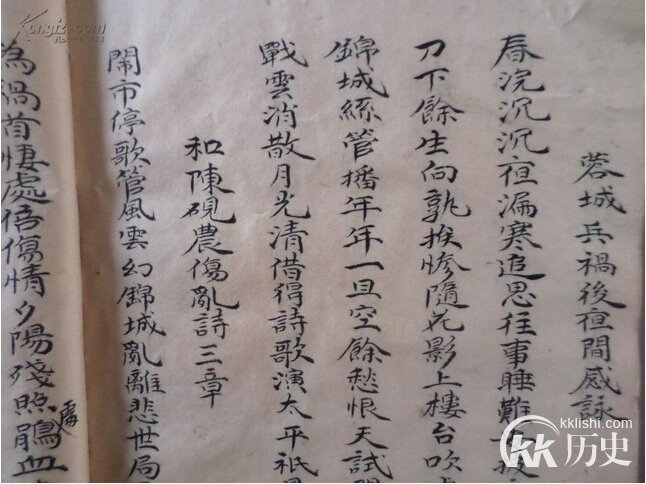 蓉城兵禍後夜間感詠
春浣沉沉夜漏寒追思往事睡難
刀下餘生向孰挨慘隨花影上樓台吹
錦城絲管播年年一旦空餘愁恨天試
戰雲消散月光清借得詩歌演太平祇
和陳硯農傷亂詩三章
鬧市停歌管風雲幻錦城亂離悲世局
為禍首悽處倍傷情夕陽殘照鵑血
處
kklishi.com
KK 历史